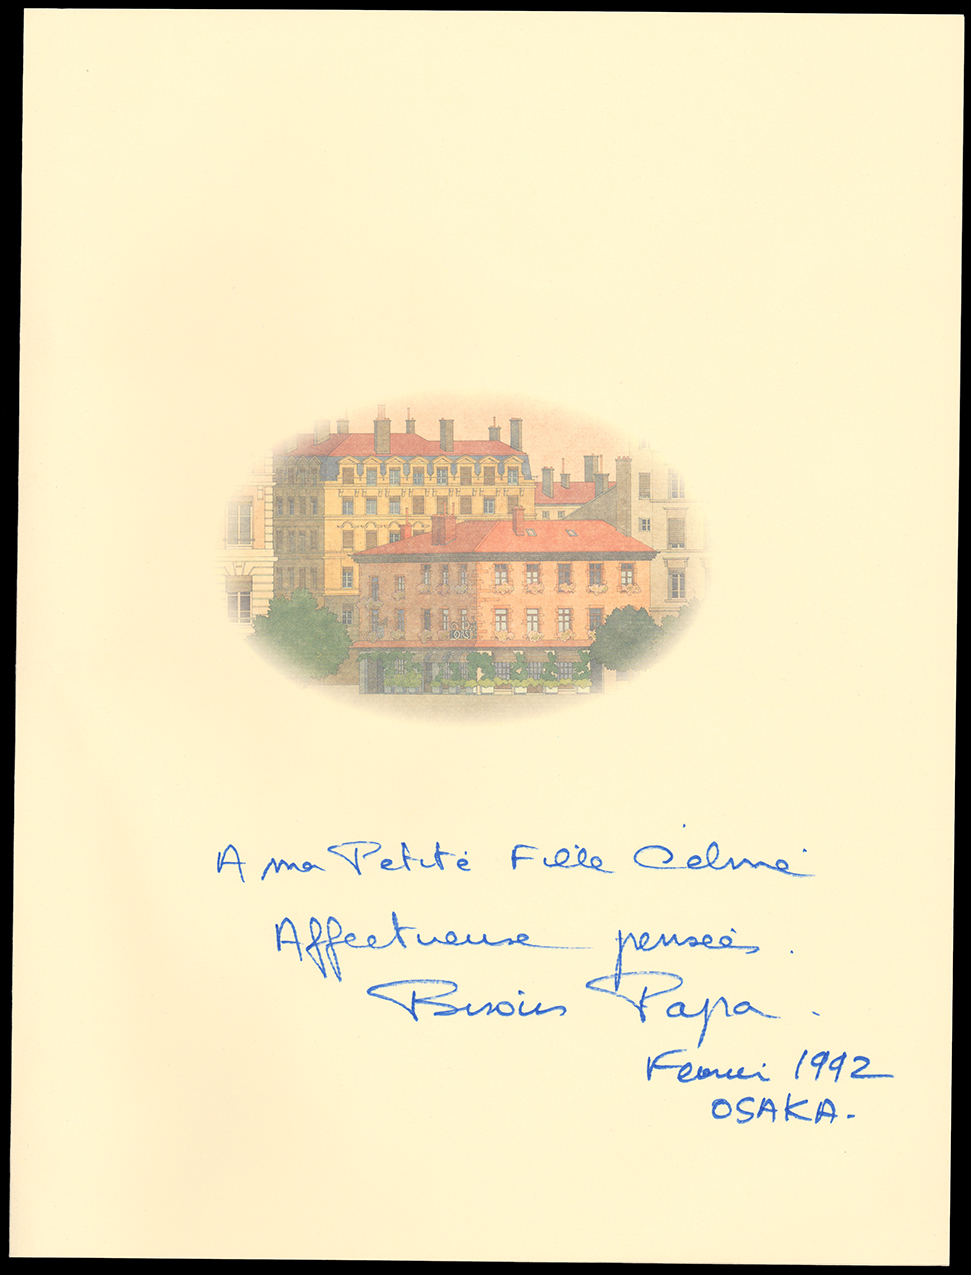 A ma Petite Fille Céline
Affectueuse pensées.
Bisous Papa.
Février 1992
OSAKA.